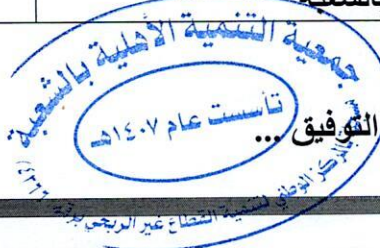 بالشعبة
جمعية التنمية الأهلية بالشعبة
تأسست عام ١٤٠٧هـ
التوفيق ...
المركز الوطني لتنمية القطاع غير الربحي برقم